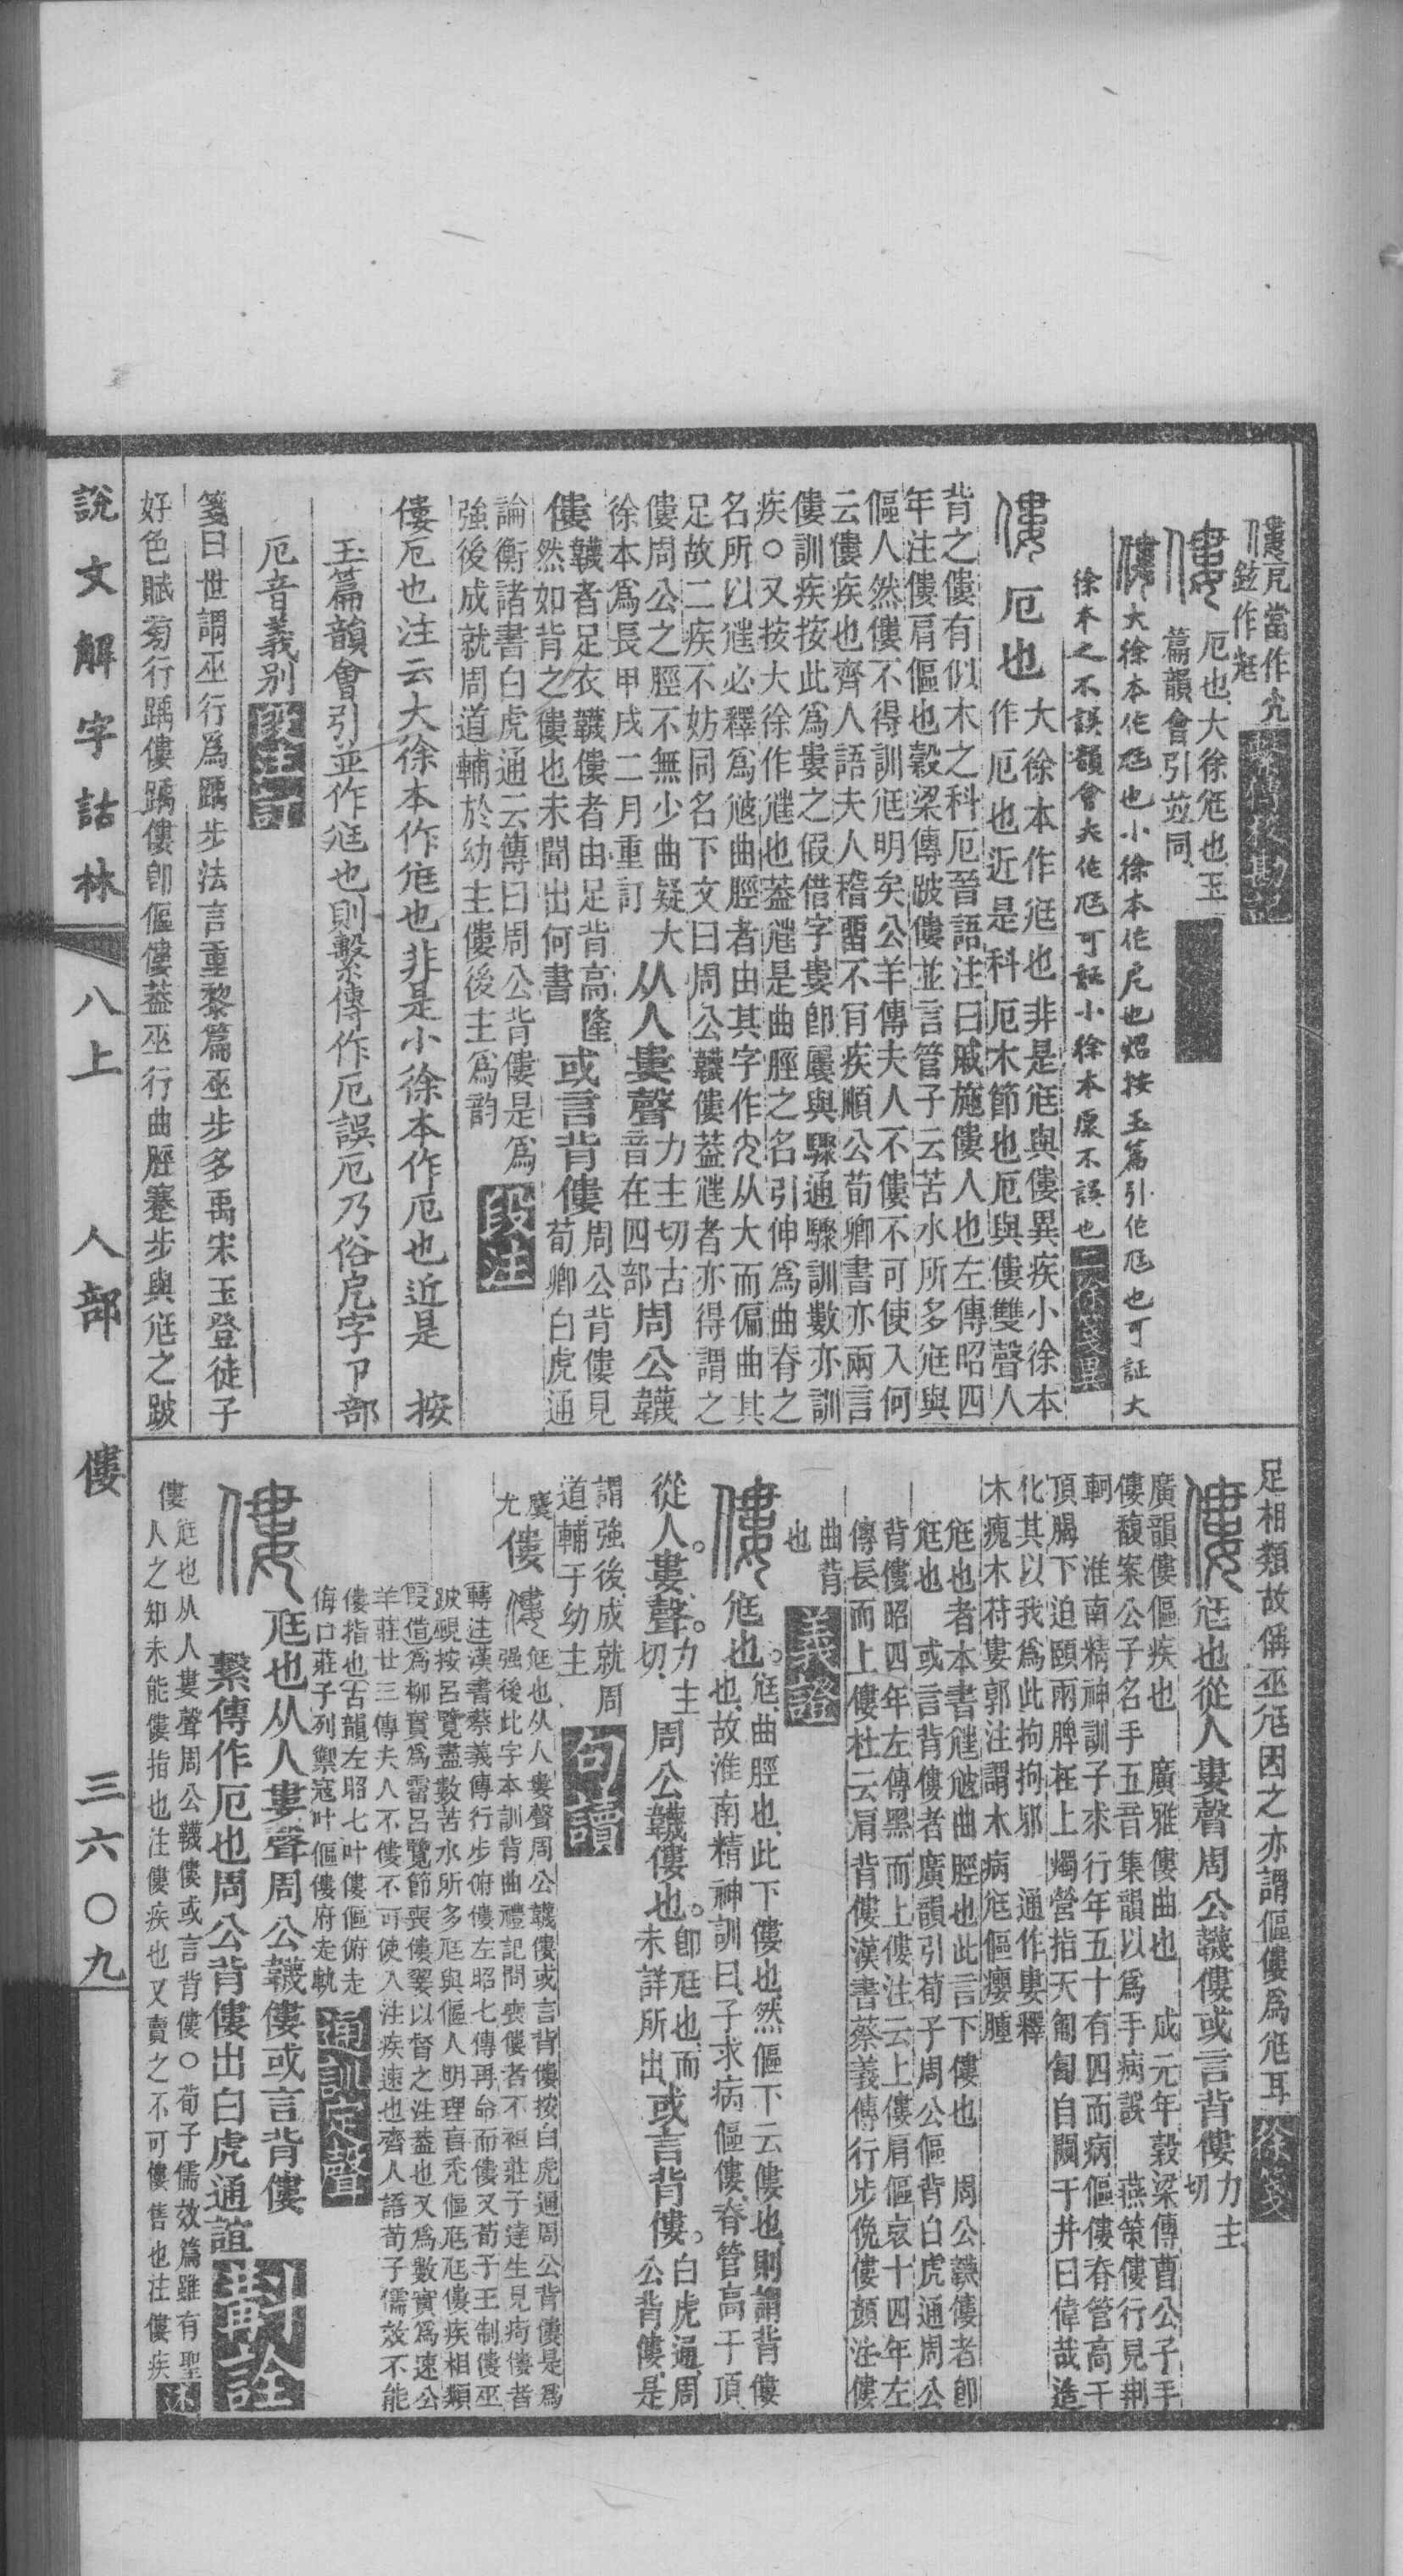 僂尣當作尣
鉉作尪
僂厄也大徐尪也玉
篇韻會引並同
僂大徐本作尪也小徐本作戹也紹按玉篇引作尪也可証大
徐本之不誤韻會大作尪可証小徐本原不誤也
僂厄也大徐本作尪也非是尪與僂異疾小徐本
作厄也近是科厄木節也厄與僂雙聲人
背之僂有似木之科厄晉語注曰戚施僂人也左傳昭四
年注僂肩傴也穀梁傳跛僂並言管子云苦水所多尪與
傴人然僂不得訓尪明矣公羊傳夫人不僂不可使入何
云僂疾也齊人語夫人稽畱不肎疾順公荀卿書亦兩言
僂訓疾按此爲婁之假借字婁卽屢與驟通驟訓數亦訓
疾○又按大徐作尪也葢尪是曲脛之名引伸爲曲脊之
名所以尪必釋爲㝿曲脛者由其字作尣从大而偏曲其
足故二疾不妨同名下文曰周公韤僂葢尪者亦得謂之
僂周公之脛不無少曲疑大
徐本爲長甲戌二月重訂
从人婁聲力主切古
音在四部周公韤
僂韤者足衣韤僂者由足背高隆
然如背之僂也未聞出何書或言背僂周公背僂見
荀卿白虎通
論衡諸書白虎通云傳曰周公背僂是爲
強後成就周道輔於幼主僂後主爲韵段注
僂厄也注云大徐本作尪也非是小徐本作厄也近是 按
玉篇韻會引並作尪也則繫傳作厄誤厄乃俗戹字卩部
厄音義别段注訂
箋曰世謂巫行爲踽步法言重黎篇巫步多禹宋玉登徒子
好色賦菊行踽僂踽僂卽傴僂葢巫行曲脛蹇步與尪之跛
足相類故偁巫尪因之亦謂傴僂爲尪耳徐箋
僂尪也從人婁聲周公韤僂或言背僂力主
切
廣韻僂傴疾也 廣雅僂曲也 成元年穀梁傳曹公子手
僂馥案公子名手五音集韻以爲手病誤 燕策僂行見荆
軻 淮南精神訓子求行年五十有四而病傴僂脊管高于
頂䯊下迫頤兩脾在上燭營指天匍匐自闚于井曰偉哉造
化其以我爲此拘拘邪 通作婁釋
木瘣木苻婁郭注謂木病尪傴癭腫
尪也者本書尪㝿曲脛也此言下僂也 周公韤僂者卽
尪也 或言背僂者廣韻引荀子周公傴背白虎通周公
背僂昭四年左傳黑而上僂注云上僂肩傴哀十四年左
傳長而上僂杜云肩背僂漢書蔡義傳行步俛僂顔注僂
曲背
也義證
僂尪也尪曲脛也此下僂也然傴下云僂也則謂背僂
也故淮南精神訓曰子求病傴僂脊管高于頂
從人婁聲力主
切周公韤僂也卽尪也而
未詳所出或言背僂白虎通周
公背僂是
謂強後成就周
道輔于幼主句讀
僂尪也从人婁聲周公韤僂或言背僂按白虎通周公背僂是爲
强後此字本訓背曲禮記問喪傴者不袒莊子達生見痀僂者
轉注漢書蔡義傳行步俯僂左昭七傳再命而僂又荀子王制傴巫
跛覡按呂覽盡數苦水所多尪與傴人明理盲秃傴尪尪僂疾相類
叚借爲柳實爲霤呂覽節喪僂翣以督之注葢也又爲數實爲速公
羊莊廿三傳夫人不僂不可使入注疾速也齊人語荀子儒效不能
僂指也古韻左昭七叶僂傴俯走
侮口莊子列禦寇叶傴僂府走軌通訓定聲
僂尪也从人婁聲周公韤僂或言背僂
繫傳作厄也周公背僂出白虎通誼
尪也从人婁聲周公韤僂或言背僂○荀子儒效篇雖有聖
僂人之知未能僂指也注僂疾也又賣之不可僂售也注僂疾
説文解字詁林 八上 人部 僂 三六○九